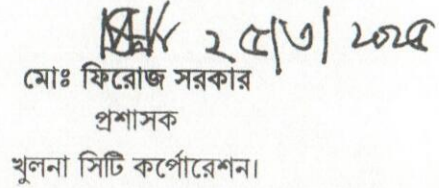 ২৫/৩/২০২৫
মোঃ ফিরোজ সরকার
প্রশাসক
খুলনা সিটি কর্পোরেশন।